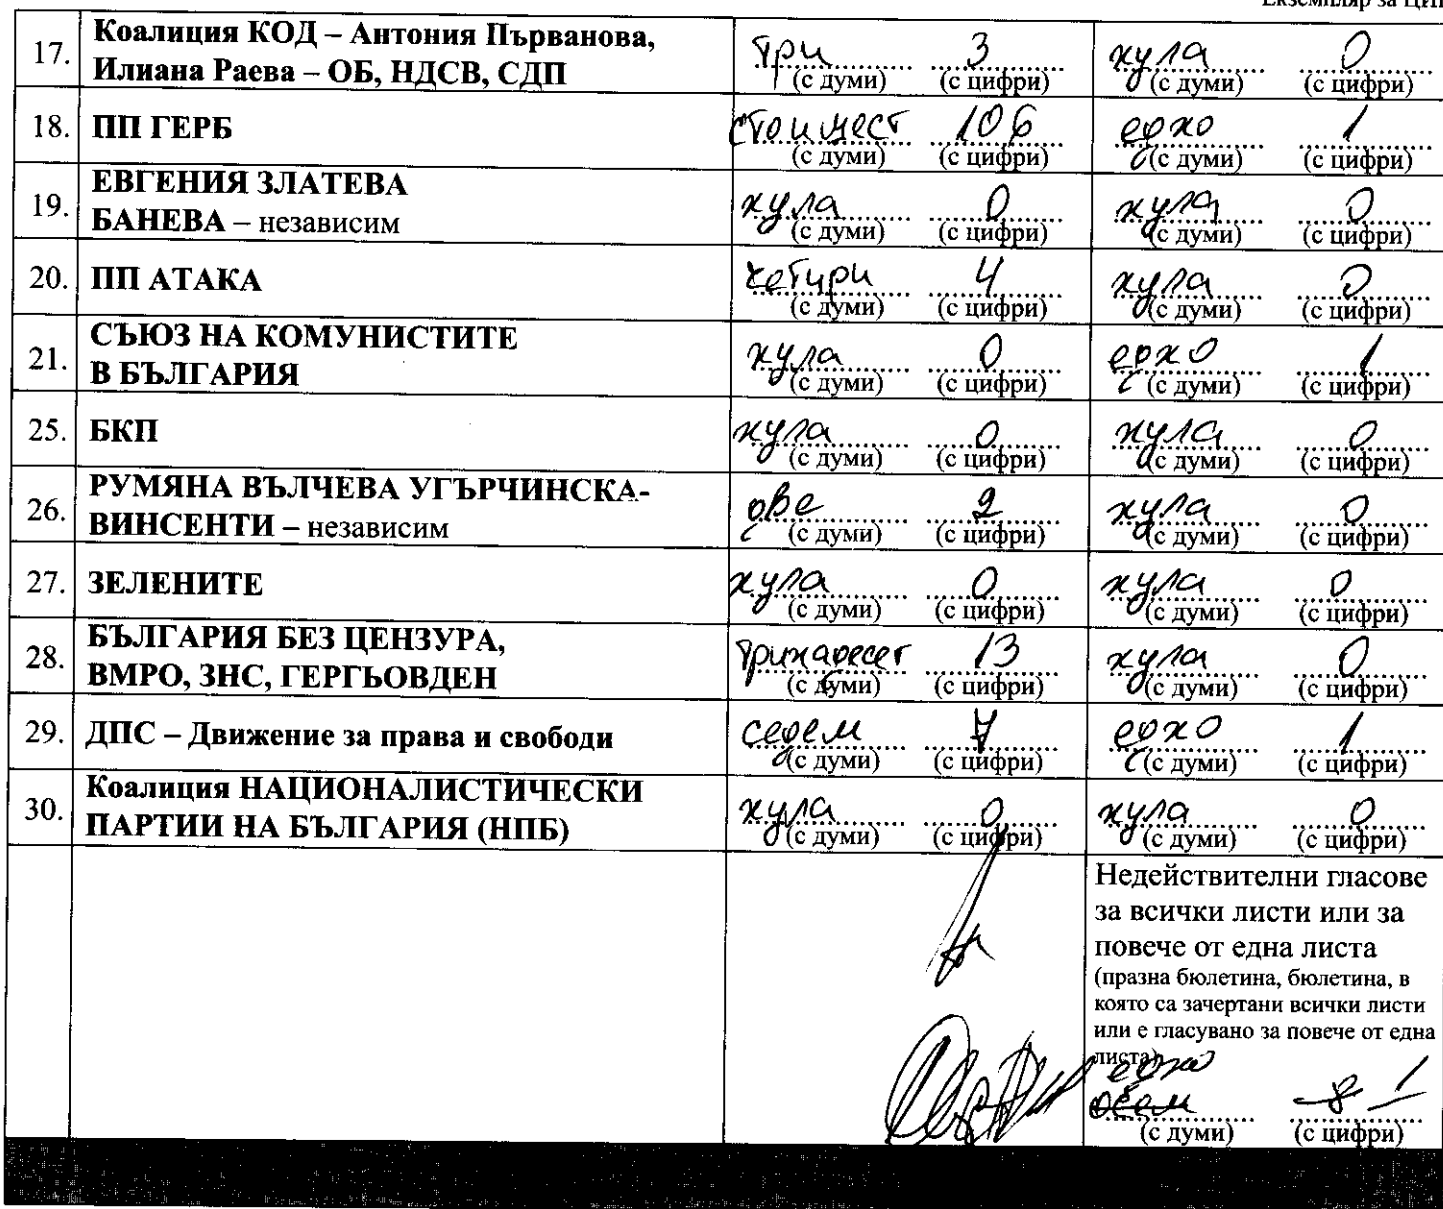 Екземпляр за ЦИК
17. Коалиция КОД – Антония Първанова, Илиана Раева – ОБ, НДСВ, СДП три (с думи) 3 (с цифри) нула (с думи) 0 (с цифри)
18. ПП ГЕРБ сто и шест (с думи) 106 (с цифри) едно (с думи) 1 (с цифри)
19. ЕВГЕНИЯ ЗЛАТЕВА БАНЕВА – независим нула (с думи) 0 (с цифри) нула (с думи) 0 (с цифри)
20. ПП АТАКА четири (с думи) 4 (с цифри) нула (с думи) 0 (с цифри)
21. СЪЮЗ НА КОМУНИСТИТЕ В БЪЛГАРИЯ нула (с думи) 0 (с цифри) едно (с думи) 1 (с цифри)
25. БКП нула (с думи) 0 (с цифри) нула (с думи) 0 (с цифри)
26. РУМЯНА ВЪЛЧЕВА УГЪРЧИНСКА-ВИНСЕНТИ – независим две (с думи) 2 (с цифри) нула (с думи) 0 (с цифри)
27. ЗЕЛЕНИТЕ нула (с думи) 0 (с цифри) нула (с думи) 0 (с цифри)
28. БЪЛГАРИЯ БЕЗ ЦЕНЗУРА, ВМРО, ЗНС, ГЕРГЬОВДЕН тринадесет (с думи) 13 (с цифри) нула (с думи) 0 (с цифри)
29. ДПС – Движение за права и свободи седем (с думи) 7 (с цифри) едно (с думи) 1 (с цифри)
30. Коалиция НАЦИОНАЛИСТИЧЕСКИ ПАРТИИ НА БЪЛГАРИЯ (НПБ) нула (с думи) 0 (с цифри) нула (с думи) 0 (с цифри)
Недействителни гласове
за всички листи или за
повече от една листа
(празна бюлетина, бюлетина, в
която са зачертани всички листи
или е гласувано за повече от една
листа)
едно
осем 8 1
(с думи) (с цифри)